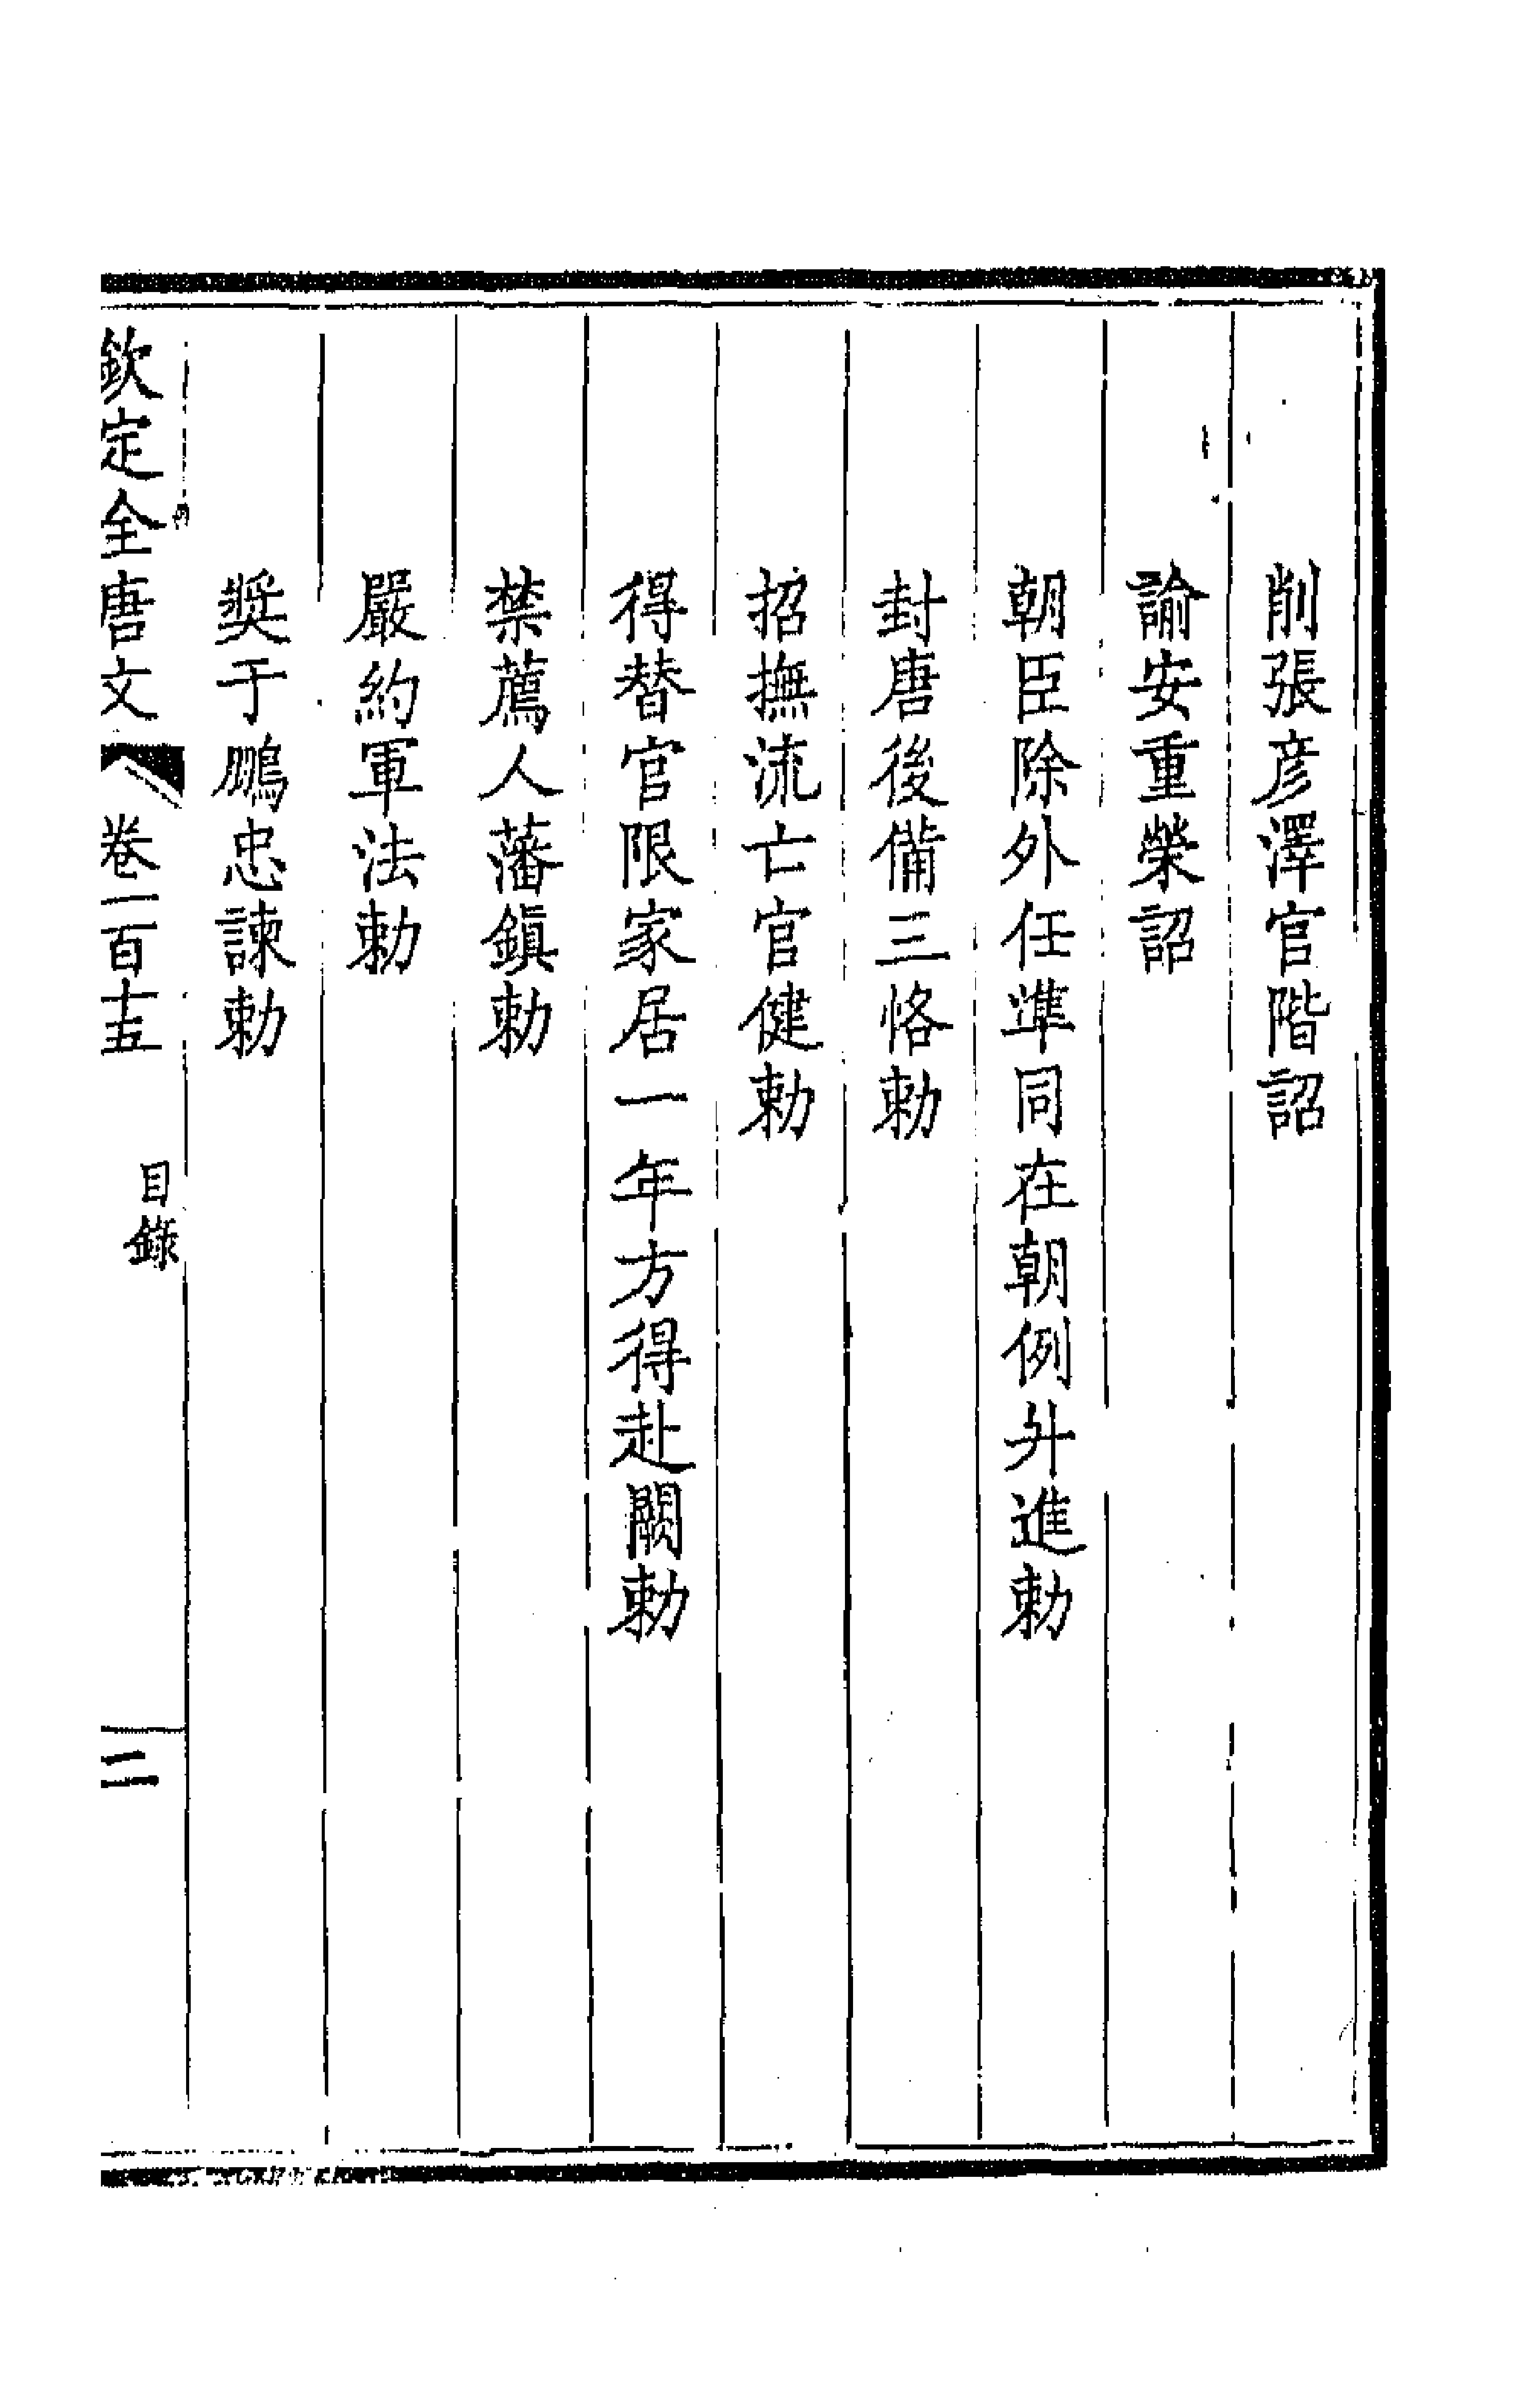 削張彦澤官階詔
諭安重榮詔
朝臣除外任準同在朝例升進勅
封唐後備三恪勅
招撫流亡官健勅
得替官限家居一年方得赴闕勅
禁薦人藩鎮勅
嚴約軍法勅
奬于鵬忠諫勅
欽定全唐文 卷一百十五 目錄 二